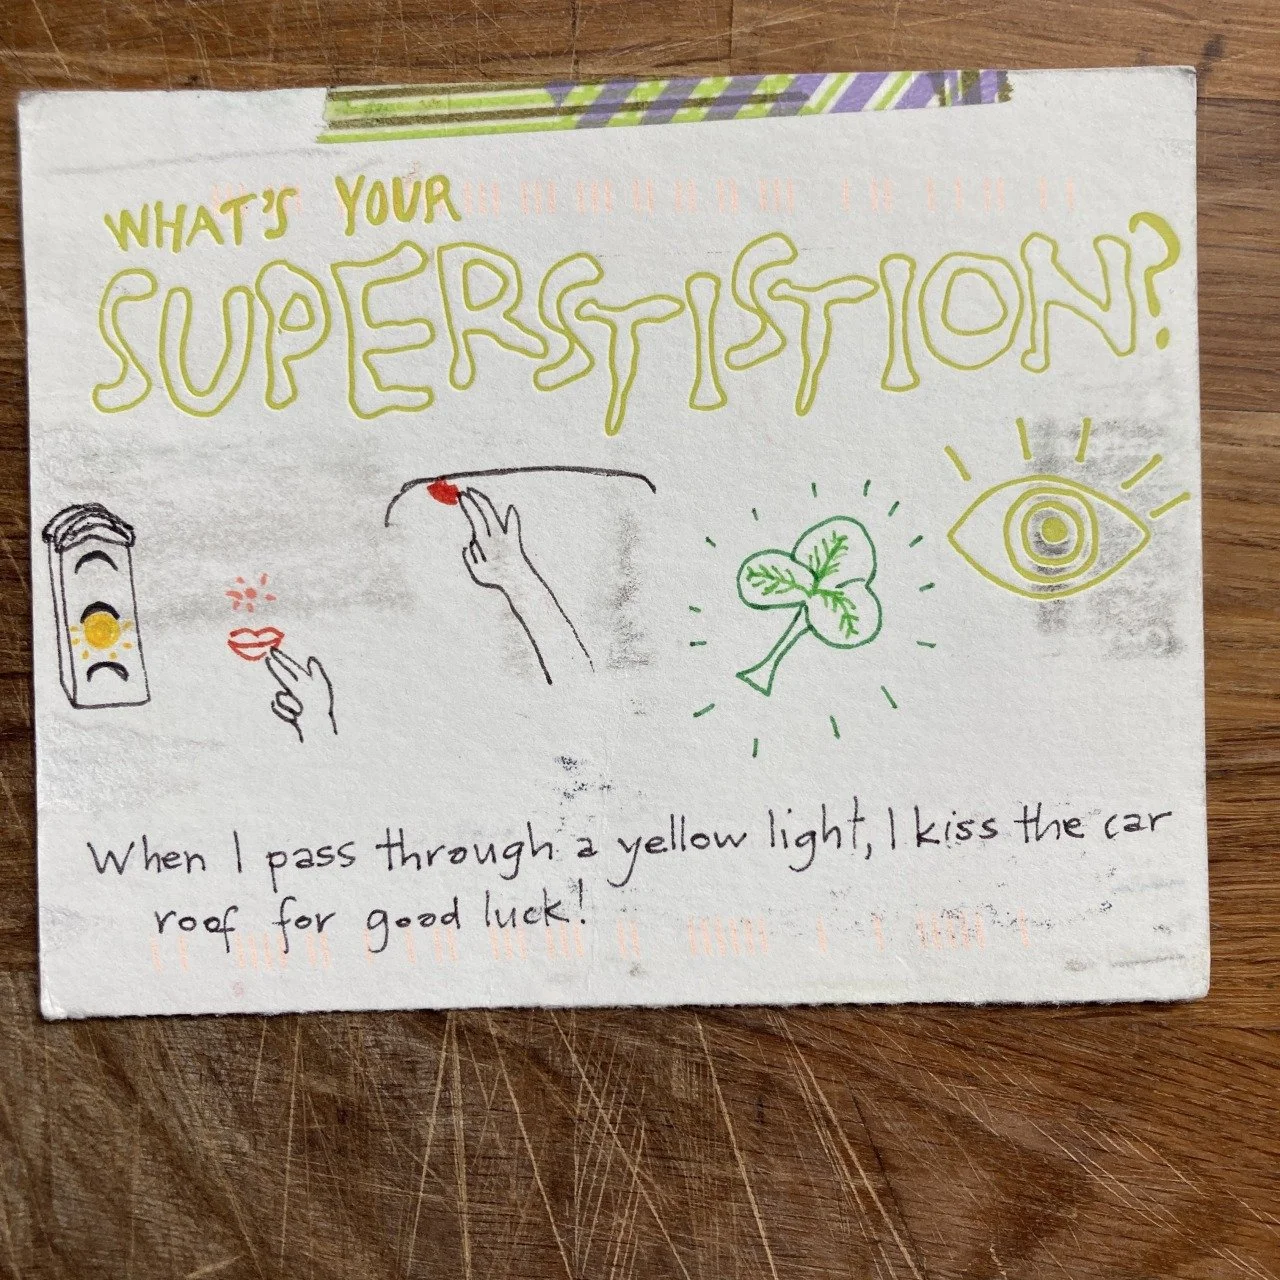 WHAT'S YOUR
SUPERSTISTION?
When I pass through a yellow light, I kiss the car
roof for good luck!